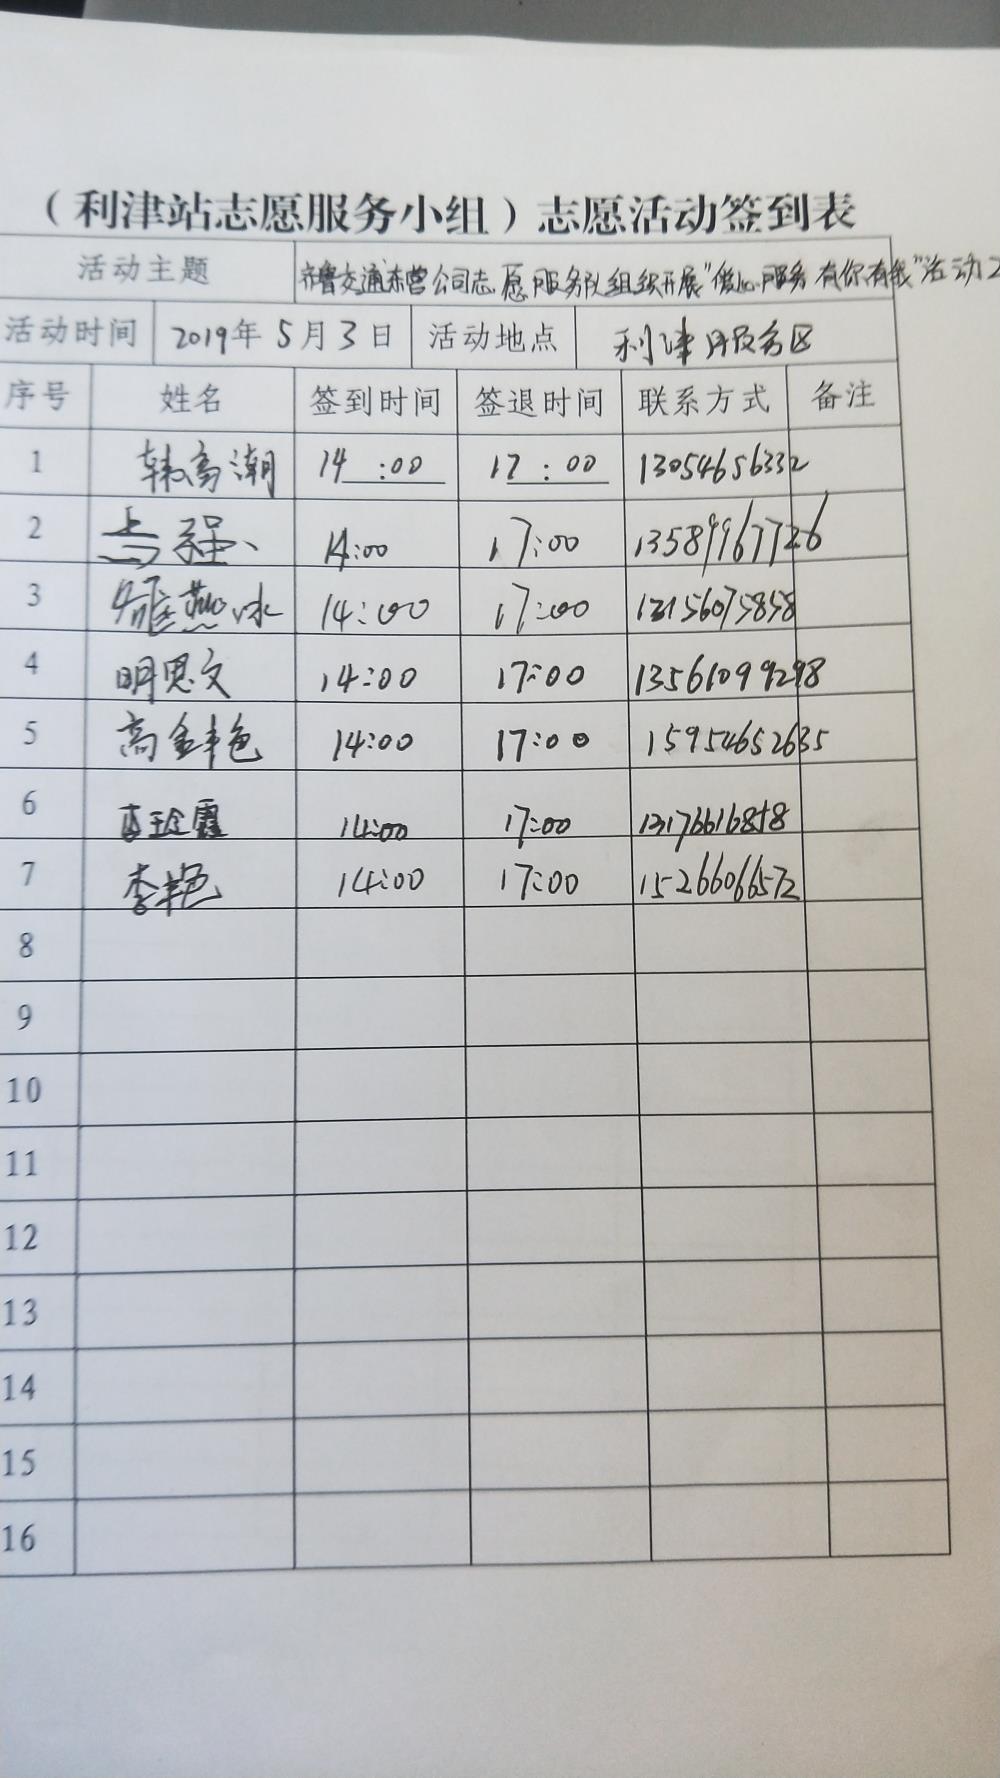 （利津站志愿服务小组）志愿活动签到表
活动主题 齐鲁交通东营公司志愿服务队组织开展“爱心服务 有你有我”活动
活动时间 2019年 5月 3日 活动地点 利津服务区
序号 姓名 签到时间 签退时间 联系方式 备注
1 韩高潮 14:00 17:00 13054656332
2 强 14:00 17:00 13589967726
3 燕冰 14:00 17:00 13156075858
4 明思文 14:00 17:00 13561099298
5 高金艳 14:00 17:00 15954652635
6 14:00 17:00 13176616858
7 李艳 14:00 17:00 15266066572
8
9
10
11
12
13
14
15
16